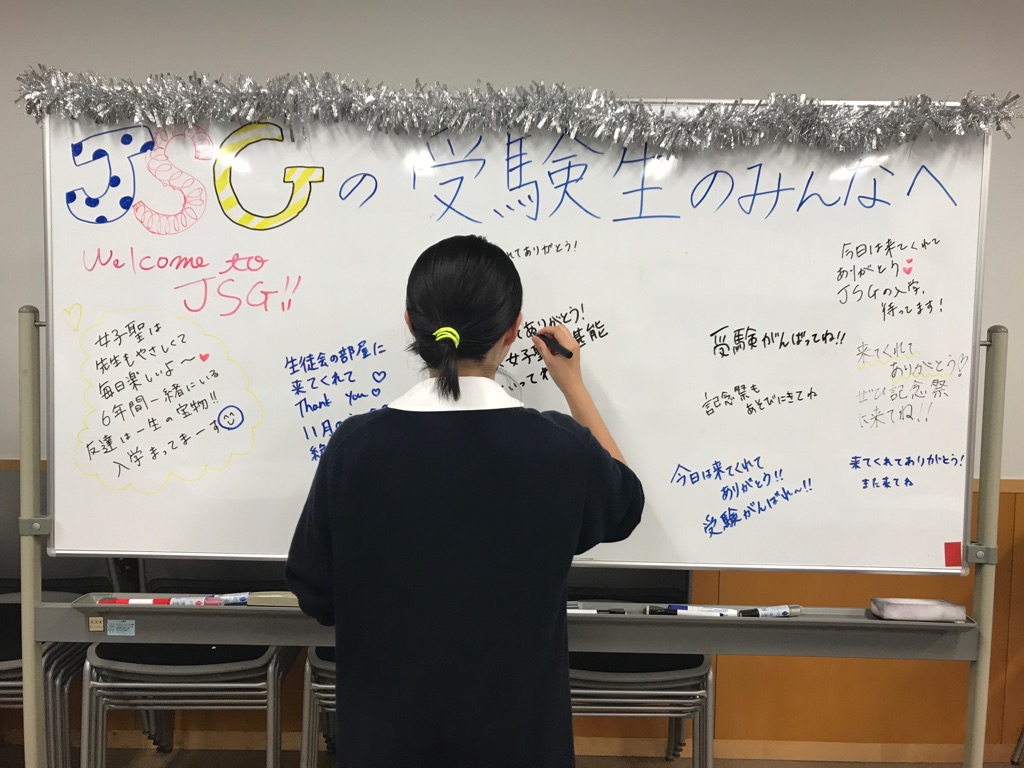 JSGの受験生のみんなへ
Welcome to
JSG!!
女子聖は
先生もやさしくて
毎日楽しいよ〜♥
6年間一緒にいる
友達は一生の宝物!!
入学まってまーす
生徒会の部屋に
来てくれて ♡
Thank you ♡
11月の
れてありがとう!
ありがとう!
女子聖
受験がんばってね!!
記念祭も
あそびにきてね
今日は来てくれて
ありがとう!!
受験がんばれ〜!!
今日は来てくれて
ありがとう♥
JSGの入学、
待ってます!
来てくれて
ありがとう!
ぜひ記念祭
に来てね!!
来てくれてありがとう!
また来てね